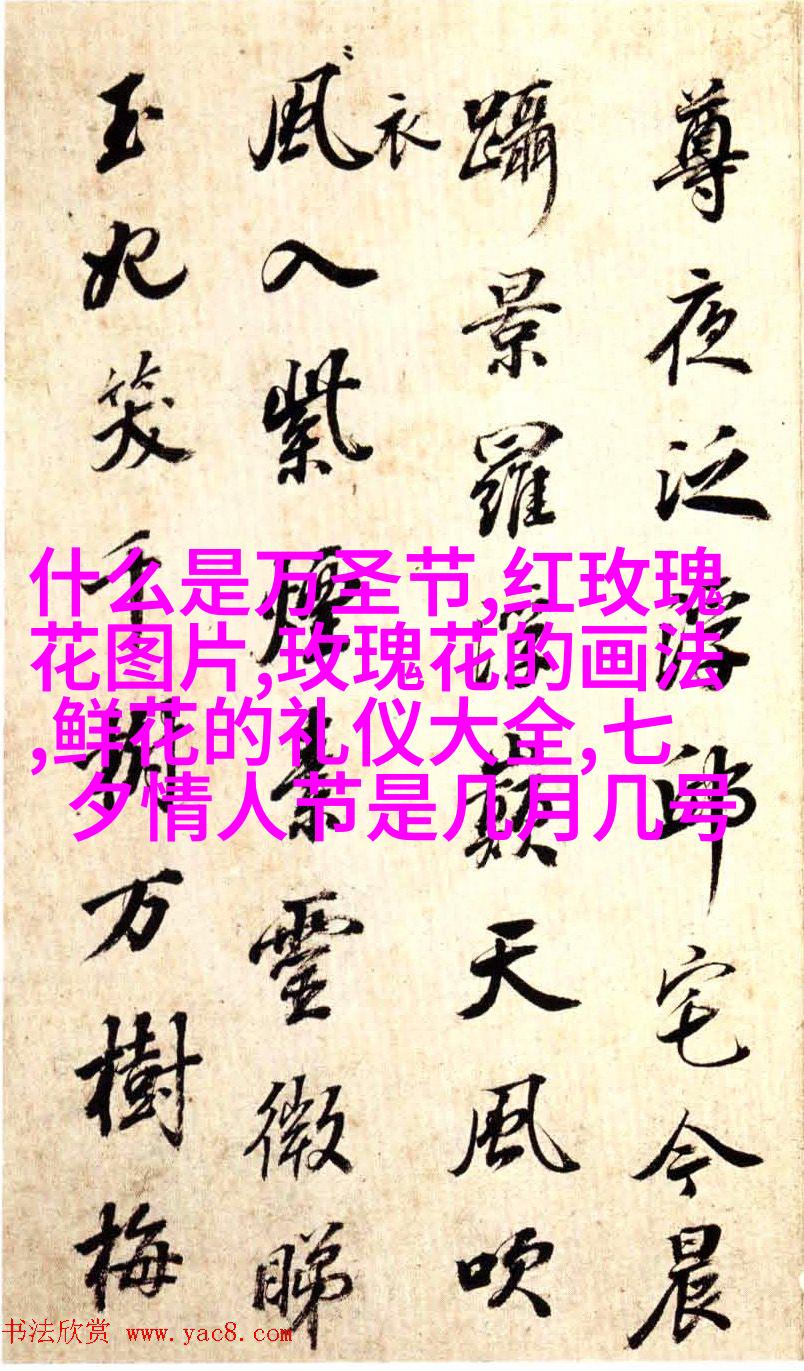 尊夜泛浮邱宅今晨
躡景羅浮巔天風吹
衣
風入紫煙素靈微睇
玉妃笑千万樹梅
什么是万圣节,红玫瑰
花图片,玫瑰花的画法
,鲜花的礼仪大全,七
夕情人节是几月几号
书法欣赏 www.yac8.com